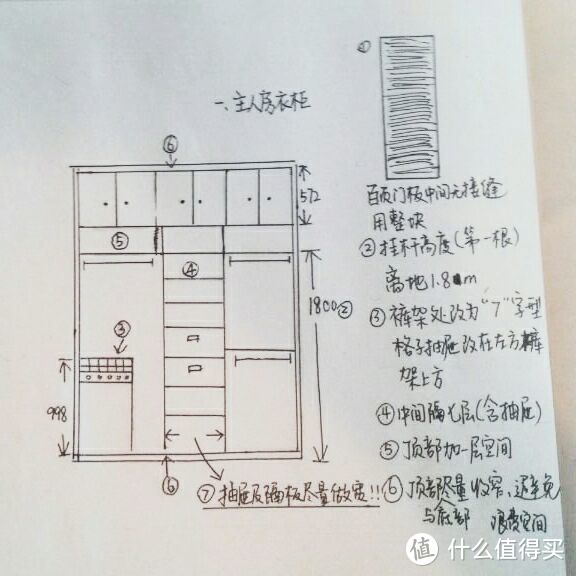 一、主人房衣柜
①
百页门板中间无接缝
用整块
②挂杆高度(第一根)
离地1.8m
③裤架处改为“7”字型
格子抽屉改在左方裤
架上方
④中间隔七层(含抽屉)
⑤顶部加一层空间
⑥顶部尽量收窄,避免
与底部 浪费空间
⑥
572
⑤
④
1800②
③
998
⑥
⑦抽屉及隔板尽量做宽!!
值 什么值得买